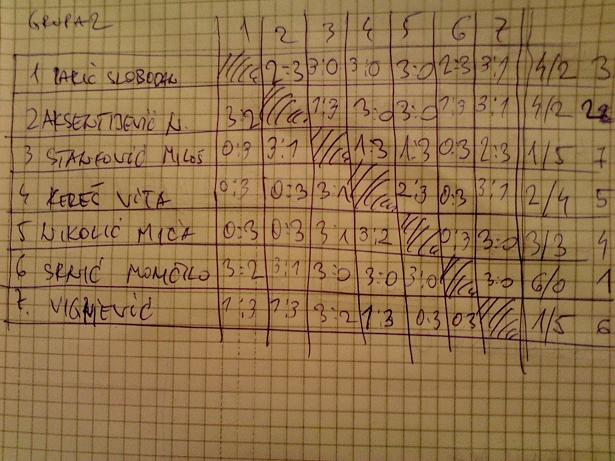 GRUPA 2
1 2 3 4 5 6 7
1 SLOBODAN 2:3 3:0 3:0 3:0 2:3 3:1 4/2 3
2 AKSENTIJEVIĆ N. 3:2 1:3 3:0 3:0 1:3 3:1 4/2 2
3 STANKOVIĆ MILOŠ 0:3 3:1 1:3 1:3 0:3 2:3 1/5 7
4 KEREČ VITA 0:3 0:3 3:1 2:3 0:3 3:1 2/4 5
5 NIKOLIĆ MIĆA 0:3 0:3 3:1 3:2 0:3 3:0 3/3 4
6 SRNIĆ MOMČILO 3:2 3:1 3:0 3:0 3:0 3:0 6/0 1
7. VIGNJEVIĆ 1:3 1:3 3:2 1:3 0:3 0:3 1/5 6